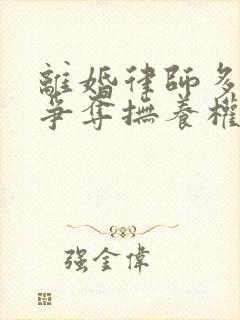 離婚律師多
爭奪撫養權
强金偉